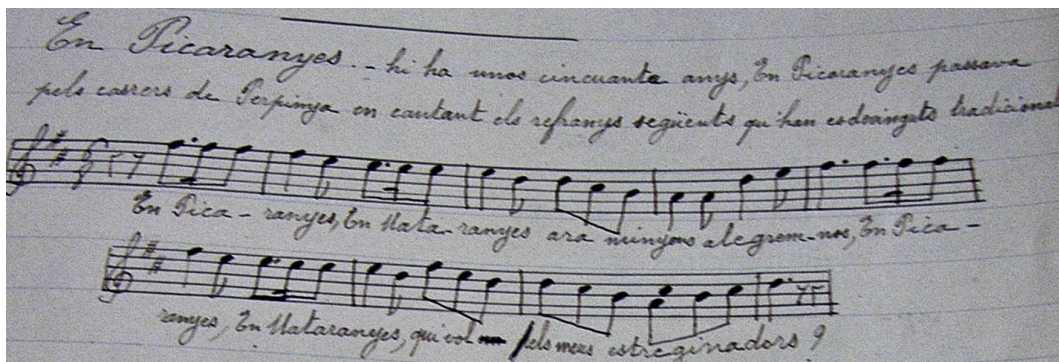 En Picaranyes. - hi ha unos cincuante anys, En Picaranyes passava
pels carrers de Perpinya en cantant els refranys següents qu'han esdeinguts tradicional
En Pica - ranyes, En Mata - ranyes ara minyons alegrem-nos, En Pica -
ranyes, En Mataranyes, qui vol els meus estreginadors ?